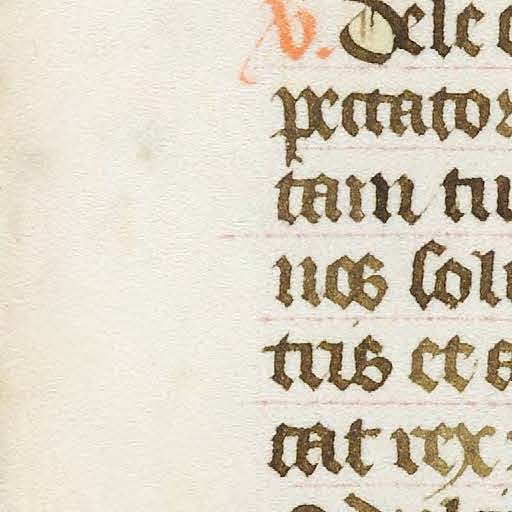 V. Dele
peccator
tam tu
nos sol
tuis et s
cat rex